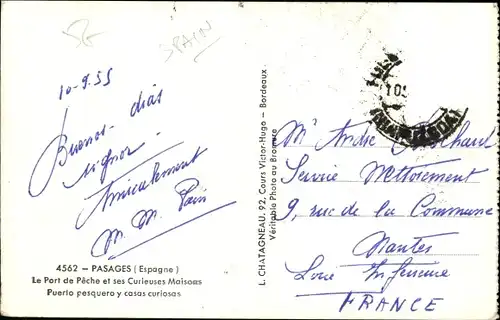 SPAIN
10-9.55
Buenos dias
signor
Amicalement
M. M. Pain
4562 - PASAGES (Espagne)
Le Port de Pêche et ses Curieuses Maisons
Puerto pesquero y casas curiosas
L. CHATAGNEAU, 92, Cours Victor-Hugo - Bordeaux
Véritable Photo au Bromure
Mr André
Service Mettoiement
9, rue de la Commune
Nantes
Loire Inferieure
FRANCE